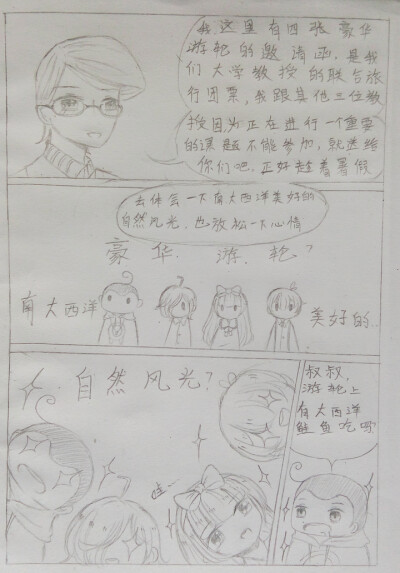 我这里有四张豪华
游轮的邀请函.是我
们大学教授的联合旅
行团票,我跟其他三位教
授因为正在进行一个重要
的课题不能参加,就送给
你们吧.正好趁着暑假
去体会一下南大西洋美好的
自然风光,也放松一下心情
豪华游轮?
南大西洋
美好的..
自然风光?
叔叔,
游轮上
有大西洋
鲑鱼吃吗